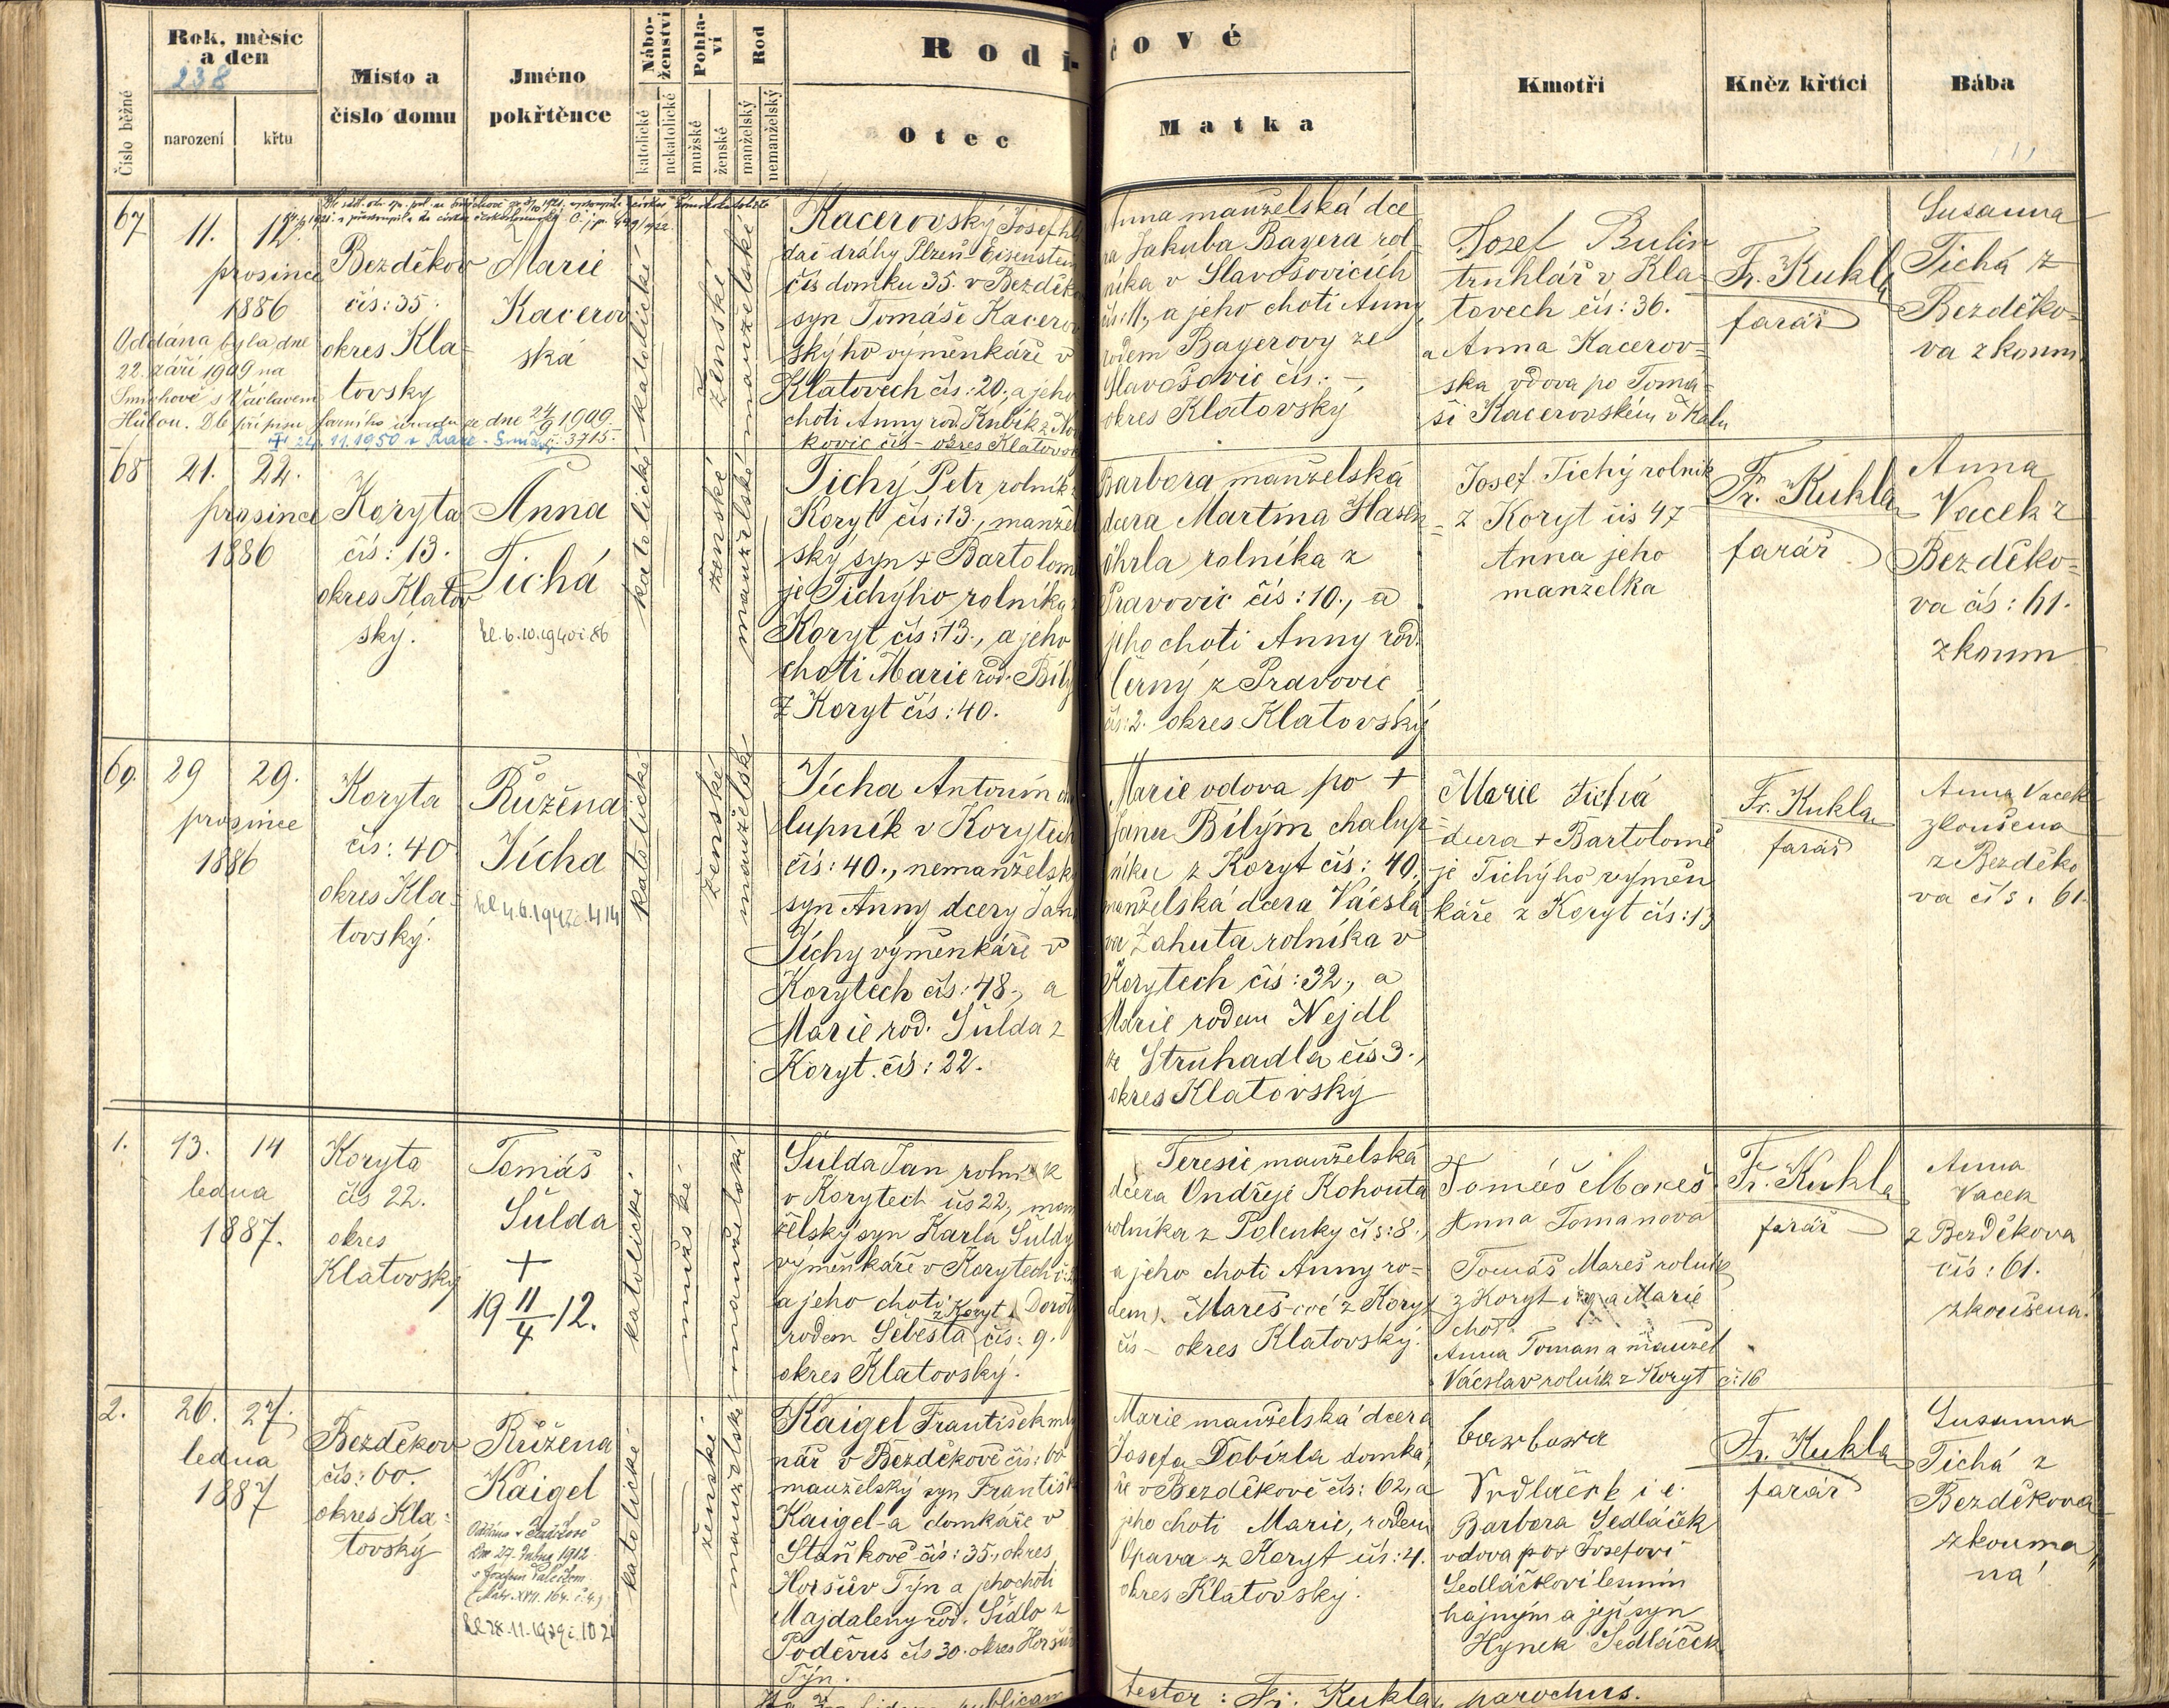 Rok, měsíc
a den
238
narození
křtu
Číslo běžné
Místo a
číslo domu
Jméno
pokřtěnce
Nábo-
ženství
katolické
nekatolické
Pohla-
ví
mužské
ženské
Rod
manželský
nemanželský
Rodi-
čové
Otec
Matka
Kmotři
Kněz křtící
Bába
67
11. 12.
prosince
1886
Oddána byla dne
22. září 1909 na
Smíchově s Václavem
Hůlou. Dle přípisu farního úřadu ze dne 24/9 1909.
24.11.1950 č. 3715.
Bezděkov
čís: 35.
okres Kla-
tovsky
Marie
Kacerov
ská
katolické
ženské
manželské
Kacerovský Josef hlí
dač dráhy Plzeň Eisenstein
čís domku 35. v Bezděko
syn Tomáše Kacerov
ského výměnkáře v
Klatovech čís: 20., a jeho
choti Anny rod. Kubík z
kovic čís - okres Klatovsk
Anna manželská dce
ra Jakuba Bayera rol-
níka v Slavošovicích
čís: 11., a jeho choti Anny,
rodem Bayerovy ze
Slavošovic čís: -,
okres Klatovský
Josef Bulin
truhlář v Kla-
tovech čís: 36.
a Anna Kacerov-
ska vdova po Tomá-
ši Kacerovském v
Fr. Kukla
farář
Susanna
Tichá z
Bezděko-
va zkoum
68
21. 22.
prosince
1886
Koryta
čís: 13.
okres Klatov
ský.
Anna
Tichá
katolické
ženské
manželské
Tichý Petr rolník
Koryt čís: 13., manžel
ský syn + Bartolom
je Tichýho rolníka
Koryt čís: 13., a jeho
choti Marie rod. Bílý
z Koryt čís: 40.
Barbora manželská
dcera Martina Hasen
öhrla rolníka z
Pravovic čís: 10., a
jeho choti Anny rod.
Černý z Pravovic
čís: 2. okres Klatovský
Josef Tichý rolník
z Koryt čis 47
Anna jeho
manželka
Fr. Kukla
farář
Anna
Vacek z
Bezděko-
va čís: 61.
zkoum
69.
29 29.
prosince
1886
Koryta
čís: 40
okres Kla-
tovský.
Růžena
Jícha
katolické
ženské
manželsk
Jícha Antonín cha
lupník v Korytech
čís: 40., nemanželsk
syn Anny dcery Jan
Jíchy výměnkáře v
Korytech čís: 48., a
Marie rod. Šulda z
Koryt. čís: 22.
Marie vdova po +
Janu Bílým chalup-
níku z Koryt čís: 40.,
manželská dcera Václa
va Zahuta rolníka v
Korytech čís: 32., a
Marie rodem Nejdl
ze Struhadla čís 3.,
okres Klatovský
Marie Tichá
dcera + Bartolomě
je Tichýho výměn
káře z Koryt čís: 13
Fr. Kukla
farář
Anna Vacek
zkoušena
z Bezděko
va čís. 61.
1.
13. 14
ledna
1887.
Koryta
čís 22.
okres
Klatovský
Tomáš
Šulda
+
19 11/4 12.
katolické
mužské
manželské
Šulda Jan rolník
v Korytech čís 22, man
želský syn Karla Šuldy
výměnkáře v Korytech čís
a jeho choti Dorot
z Koryt
rodem Šebesta čís: 9.
okres Klatovský.
Teresie manželská
dcera Ondřeje Kohouta
rolníka z Polenky čís: 8.,
a jeho choti Anny ro-
dem Mareš-ové z Koryt
čís - okres Klatovský.
Tomáš Mareš
Anna Tomanova
Tomáš Mareš rolník
z Koryt a Marie
choť
Anna Toman a manžel
Václav rolník z Koryt č: 16
Fr. Kukla
farář
Anna
Vacek
z Bezděkova
čís: 61.
zkoušena.
2.
26. 27.
ledna
1887
Bezděkov
čís: 60.
okres Kla-
tovský
Růžena
Kaigel
Oddána v
dne 27. dubna 1912
s Josefem
katolické
ženské
manželské
Kaigel František mly
nář v Bezděkově čís: 60
manželský syn Františk
Kaigel-a domkáře v
Staňkově čís: 35., okres
Horšův Týn a jeho choti
Majdaleny rod. Šídlo z
Poděvus čís 30. okres Horšův
Týn.
Marie manželská dcera
Josefa Dobízla domká-
ře v Bezděkově čís: 62, a
jeho choti Marie, rodem
Opava z Koryt čís: 4.
okres Klatovský.
Barbora Sedláček
vdova po + Josefovi
Sedláčkovi lesním
hajným a její syn
Hynek Sedláček
Fr. Kukla
farář
Susanna
Tichá z
Bezděkova
zkouma
ná
publicam
testor: Fr. Kukla, parochus.